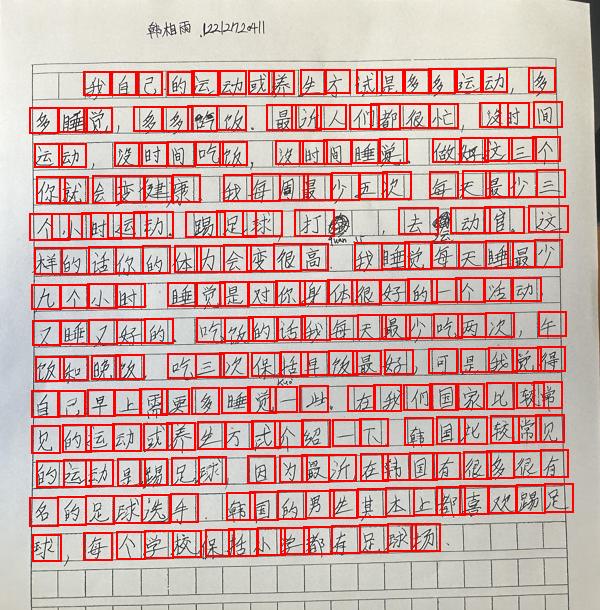 韩相雨 1221272041
我自己的运动或养生方试是多多运动，多
多睡觉，多多吃饭。最近人们都很忙，没时间
运动，没时间吃饭，没时间睡觉。做好这三个
你就会变健康。我每周最少五次 每天最少三
个小时运动。踢足球，打 quan ji，去运动官。这
样的话你的体力会变很高。我睡觉每天睡最少
九个小时 睡觉是对你身体很好的一个活动.
又睡又好的. 吃饭的话我每天最少吃两次，午
饭和晚饭. 吃三次保括早饭最好，可是我觉得
kuo
自己早上需要多睡觉一些. 在我们国家比较常
见的运动或养生方式介绍一下 韩国比较常见
的运动是踢足球, 因为最近在韩国有很多很有
名的足球洗手. 韩国的男生其本上都喜欢踢足
球，每个学校保括小学都有足球场.